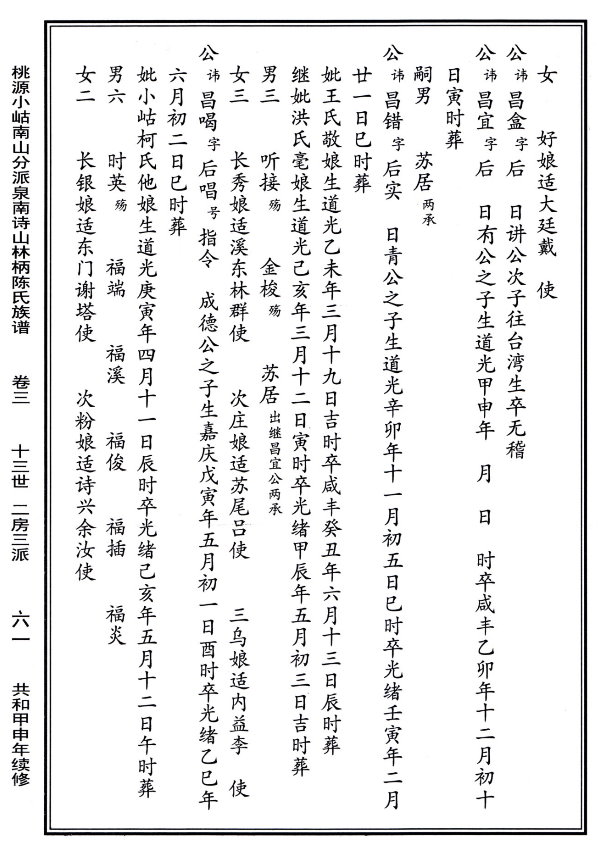 女 好娘适大廷戴 使
公讳昌盒字后 日讲公次子往台湾生卒无稽
公讳昌宜字后 日有公之子生道光甲申年 月 日 时卒咸丰乙卯年十二月初十
日寅时葬
嗣男 苏居两承
公讳昌错字后实 日青公之子生道光辛卯年十一月初五日巳时卒光绪壬寅年二月
廿一日巳时葬
妣王氏敬娘生道光乙未年三月十九日吉时卒咸丰癸丑年六月十三日辰时葬
继妣洪氏毫娘生道光己亥年三月十二日寅时卒光绪甲辰年五月初三日吉时葬
男三 听接殇 金梭殇 苏居出继昌宜公两承
女三 长秀娘适溪东林群使 次庄娘适苏尾吕使 三乌娘适内益李 使
公讳昌喝字后唱号指令 成德公之子生嘉庆戊寅年五月初一日酉时卒光绪乙巳年
六月初二日巳时葬
妣小岵柯氏他娘生道光庚寅年四月十一日辰时卒光绪己亥年五月十二日午时葬
男六 时英殇 福端 福溪 福俊 福插 福炎
女二 长银娘适东门谢塔使 次粉娘适诗兴余汝使
桃源小岵南山分派泉南诗山林柄陈氏族谱 卷三 十三世 二房三派 六一 共和甲申年续修